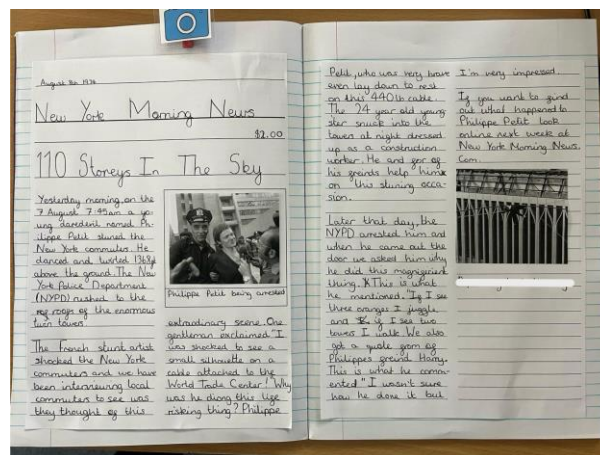 August 8th 1974
New York Morning News
$2.00
110 Storeys In The Sky
Yesterday morning, on the
7 August 7:45am a yo-
ung daredevil named Ph-
ilippe Petit stuned the
New York commuters. He
danced and twirled 1368ft
above the ground. The New
York Police Department
(NYPD) rushed to the
roof of the enormous
twin towers.
The French stunt artist
shocked the New York
commuters and we have
been interviewing local
commuters to see was
they thought of this
Philippe Petit being arrested
extraodinary scene. One
gentleman exclaimed "I
was shocked to see a
small silhouette on a
cable attached to the
World Trade Center! Why
was he diong this life
risking thing? Philippe
Petit, who was very brave
even lay down to rest
on this 440lb cable.
The 24 year old young-
ster snuck into the
towers at night dressed
up as a construction
worker. He and for of
his freinds help him
on this stuning occa-
sion.
Later that day, the
NYPD arrested him and
when he came out the
door we asked him why
he did this magnificent
thing. This is what
he mentioned. "If I see
three oranges I juggle
and if I see two
towers I walk. We also
got a quote from of
Philippes freind Harry.
This is what he comm-
ented "I wasn't sure
how he done it but
I'm very impressed.
If you want to find
out what happened to
Philippe Petit look
online next week at
New York Morning News.
Com.